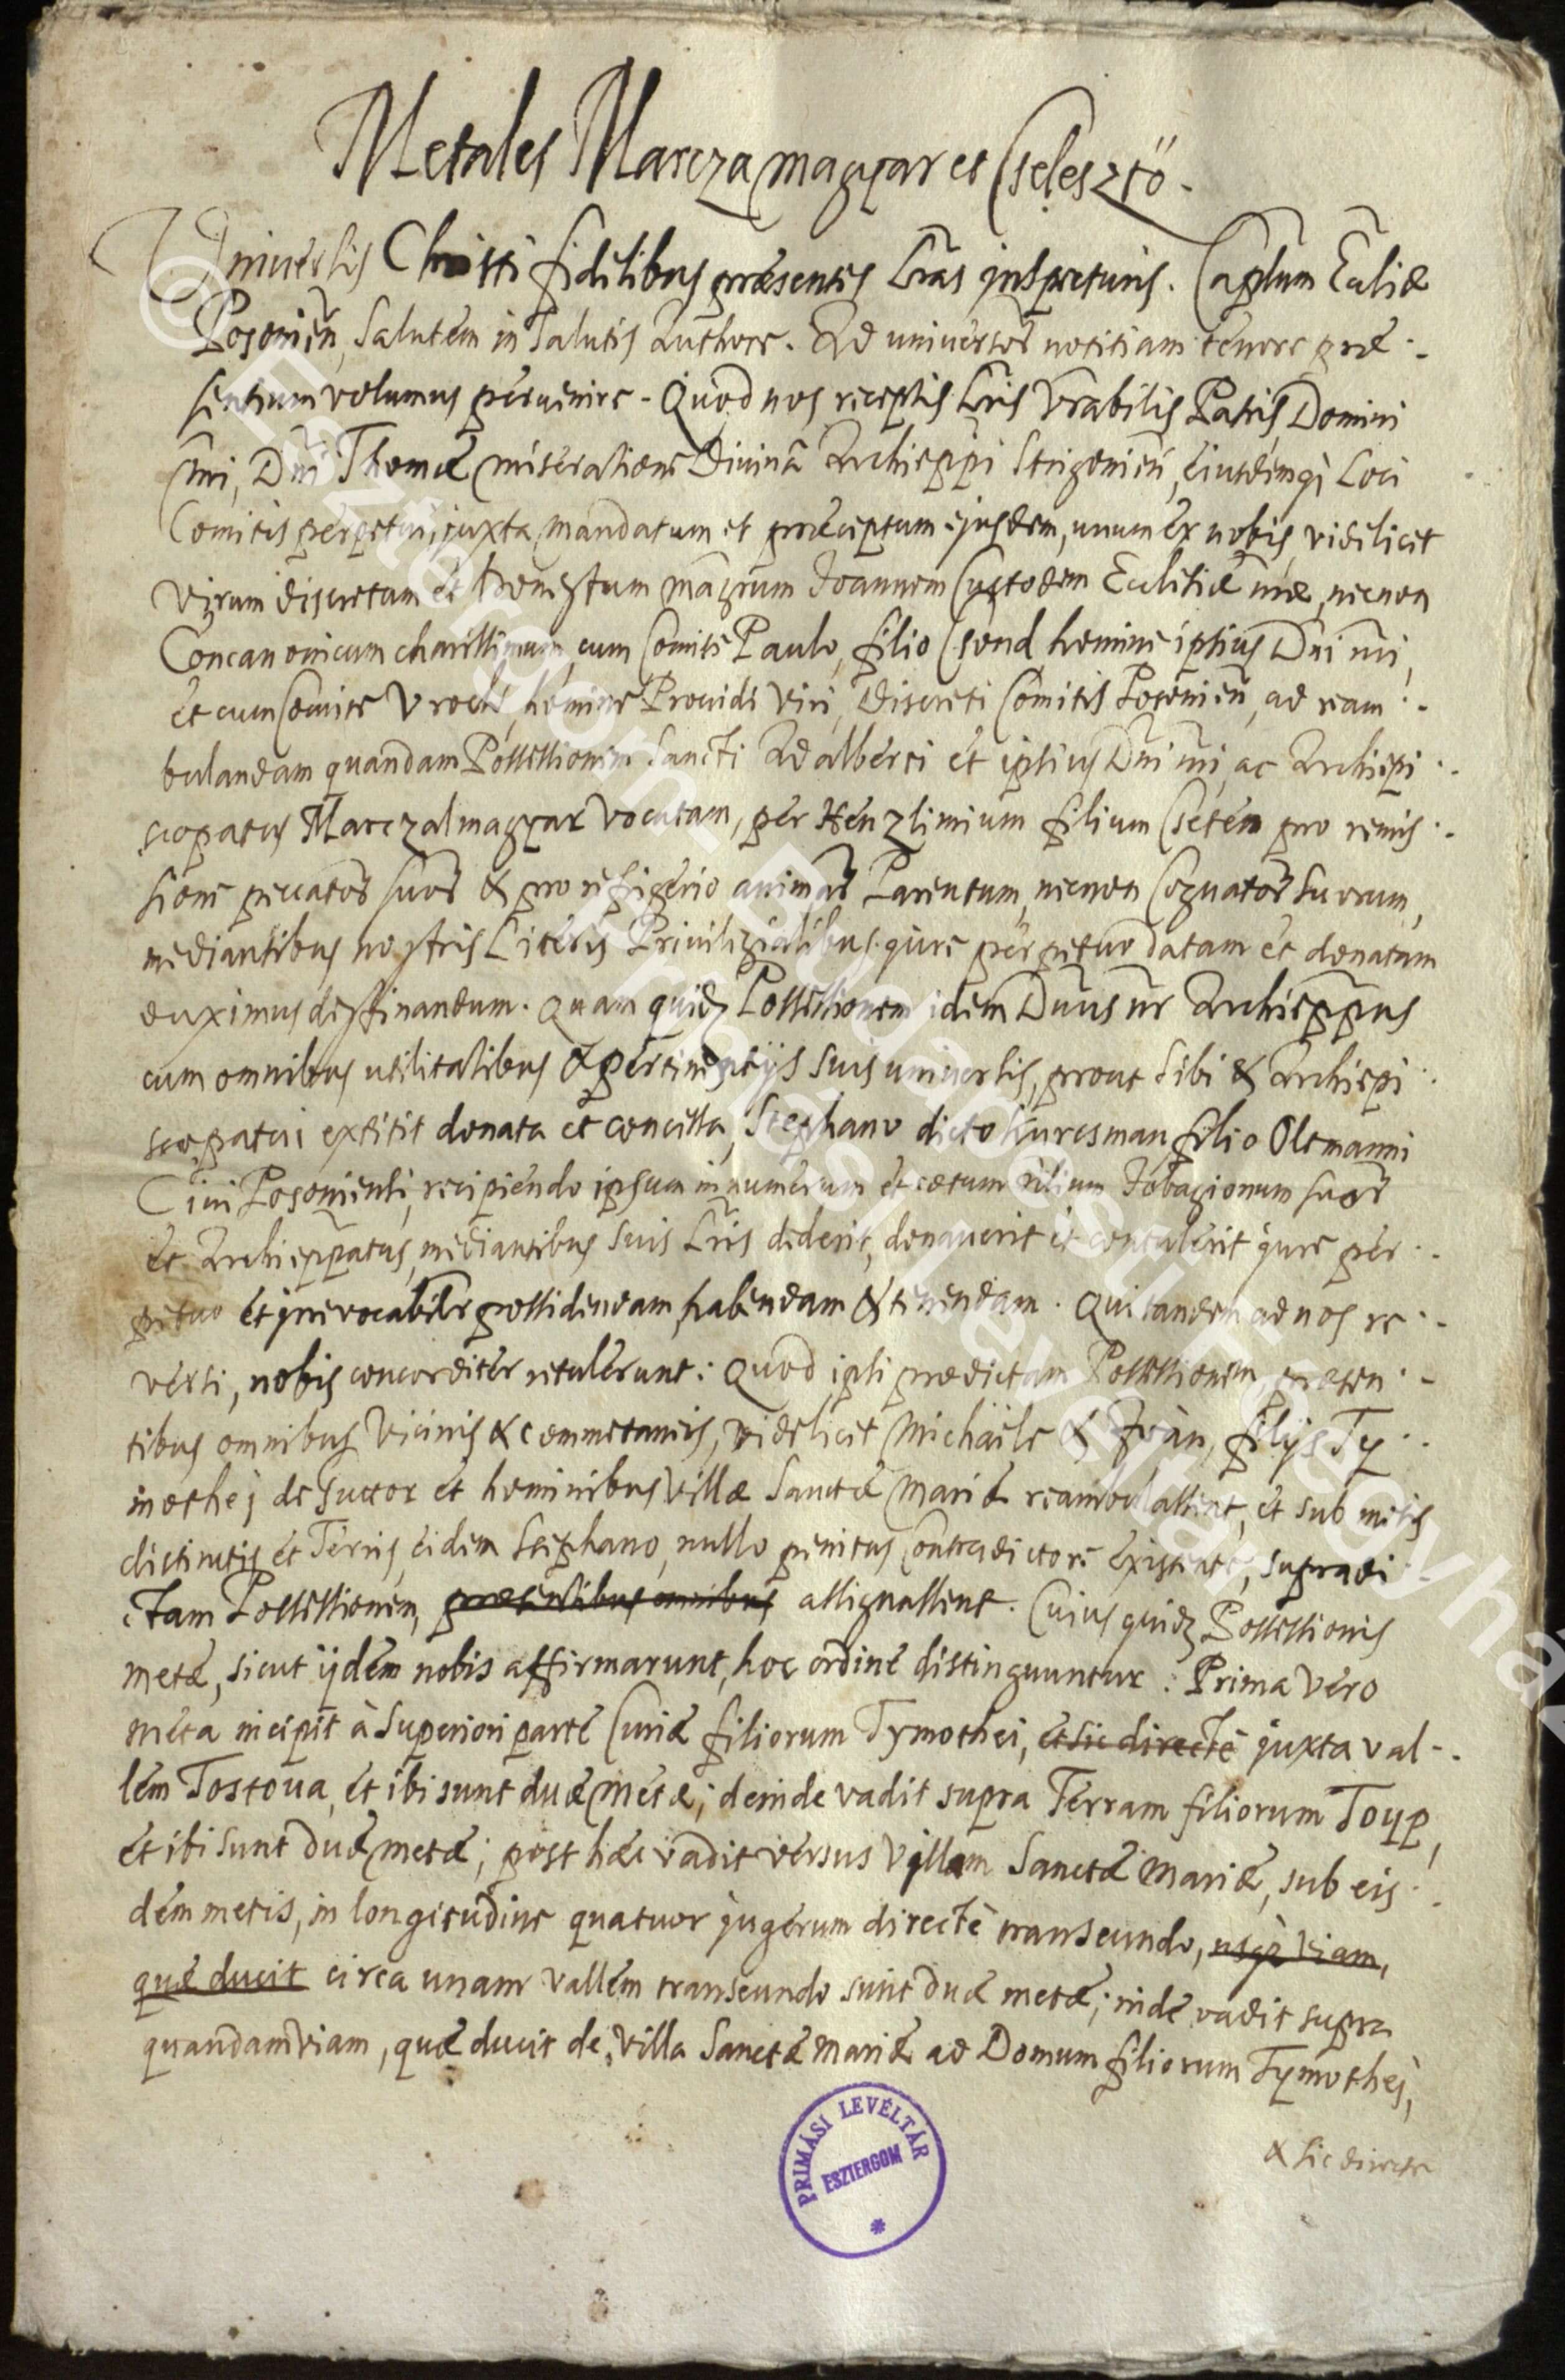 Metales Marcza magyar et Cselesztö.
Universis Christi fidelibus præsentes Lras inspecturis. Caplum Eccliæ
Posonien, Salutem in Salutis Authore. Ad universor notitiam tenore præ-
sentium volumus pervenire. Quod nos receptis Lris Vrabilis Patris Domini
nri, Dni Thomæ miseratione Divina Archieppi Strigonien, eiusdemq; Loci
Comitis perpetui, juxta mandatum et præceptum ejusdem, unum ex nobis, videlicet
Virum discretum et honestum magrum Joannem Custodem Ecclesiæ nræ, necnon
Concanonicum charissimum, cum Comite Paulo, filio Csond, homine ipsius Dni nri,
et cum Comite Vrochi, homine Providi Viri, Discreti Comitis Posonien, ad ream-
bulandam quandam Possessionem Sancti Adalberti et ipsius Dni nri, ac Archiepi-
scopatus Marczalmagyar vocatam, per Henzlinium filium Cseten pro remis-
sione peccator suor & pro refrigerio animar Parentum, necnon Cognator suorum,
mediantibus nostris Literis Privilegialibus jure perpetuo datam et donatam
duximus destinandum. Quam quidz Possessionem idem Dnus nr Archieppus
cum omnibus utilitatibus & pertinentijs suis universis, prout sibi & Archiepi-
scopatui extitit donata et concessa, Stephano dicto Kurcsman filio Oltmanni
Civi Posoniensi, recipiendo ipsum in numerum et cætum Jobagionum suor
et Archieppatus, mediantibus suis Lris dederit, donaverit et contulerit jure per-
petuo et irrevocabile possidendam, habendam & tenendam. Qui tandem ad nos re-
versi, nobis concorditer retulerunt: Quod ipsi prædictam Possessionem, præsen-
tibus omnibus Vicinis & commetaneis, videlicet Michaële & Iván, filijs Ty-
mothej de Guttor et hominibus Villæ Sanctæ Mariæ reambulassent, et sub metis
distinctis et Terris, eidem Stephano, nullo penitus Contradictore existente, supradi-
ctam Possessionem, præsentibus omnibus assignassent. Cuius quidz Possessionis
metæ, sicut ijdem nobis affirmarunt, hoc ordine distinguuntur: Prima vero
meta incipit à Superiori parte Curiæ filiorum Tymothei, et sic directè juxta val-
lem Tostoua, et ibi sunt duæ metæ; deinde vadit supra Terram filiorum Toyp,
et ibi sunt duæ metæ; post hæc vadit versus Villam Sanctæ Mariæ, sub eis-
dem metis, in longitudine quatuor jugerum directè transeundo, usq; viam,
quæ ducit circa unam vallem transeundo sunt duæ metæ; inde vadit supra
quandam viam, quæ ducit de Villa Sanctæ Mariæ ad Domum filiorum Tymothej,
& sic directe
PRIMÁSI LEVÉLTÁR
ESZTERGOM
© Esztergom-Budapesti Főegyház
Prímási Levéltár